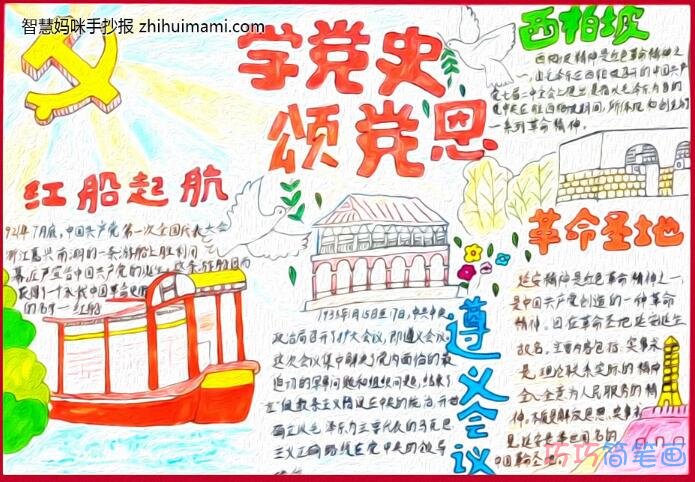 智慧妈咪手抄报 zhihuimami.com
学党史
颂党恩
红船起航
921年7月底,中国共产党第一次全国代表大会
浙江嘉兴南湖的一条游船上胜利闭
幕,庄严宣告中国共产党的诞生。这条游船因而
获得了一个永载中国革命史册
的名字—红船
1935年1月15日至17日,中共中央
政治局召开了扩大会议,即遵义会议。
这次会议集中解决了党内面临的最
迫切的军事问题和组织问题,结束了
教条主义错误在中央的统治,开始
确立以毛泽东为主要代表的马克思
主义正确路线在党中央的领导
遵义会议
西柏坡
西柏坡精神是红色革命精神之
一,由毛泽东在西柏坡召开的中国共产
党七届二中全会上提出是指以毛泽东为首的
党中央在驻西柏坡期间,所体现和创造的
一系列革命精神。
革命圣地
延安精神是红色革命精神之一,
是中国共产党创造的一种革命
精神。因在革命圣地延安诞生
故名,主要内容包括:实事求
是、理论联系实际的精神
全心全意为人民服务的精
神,不断
是延安
中国革命圣地。
巧巧简笔画